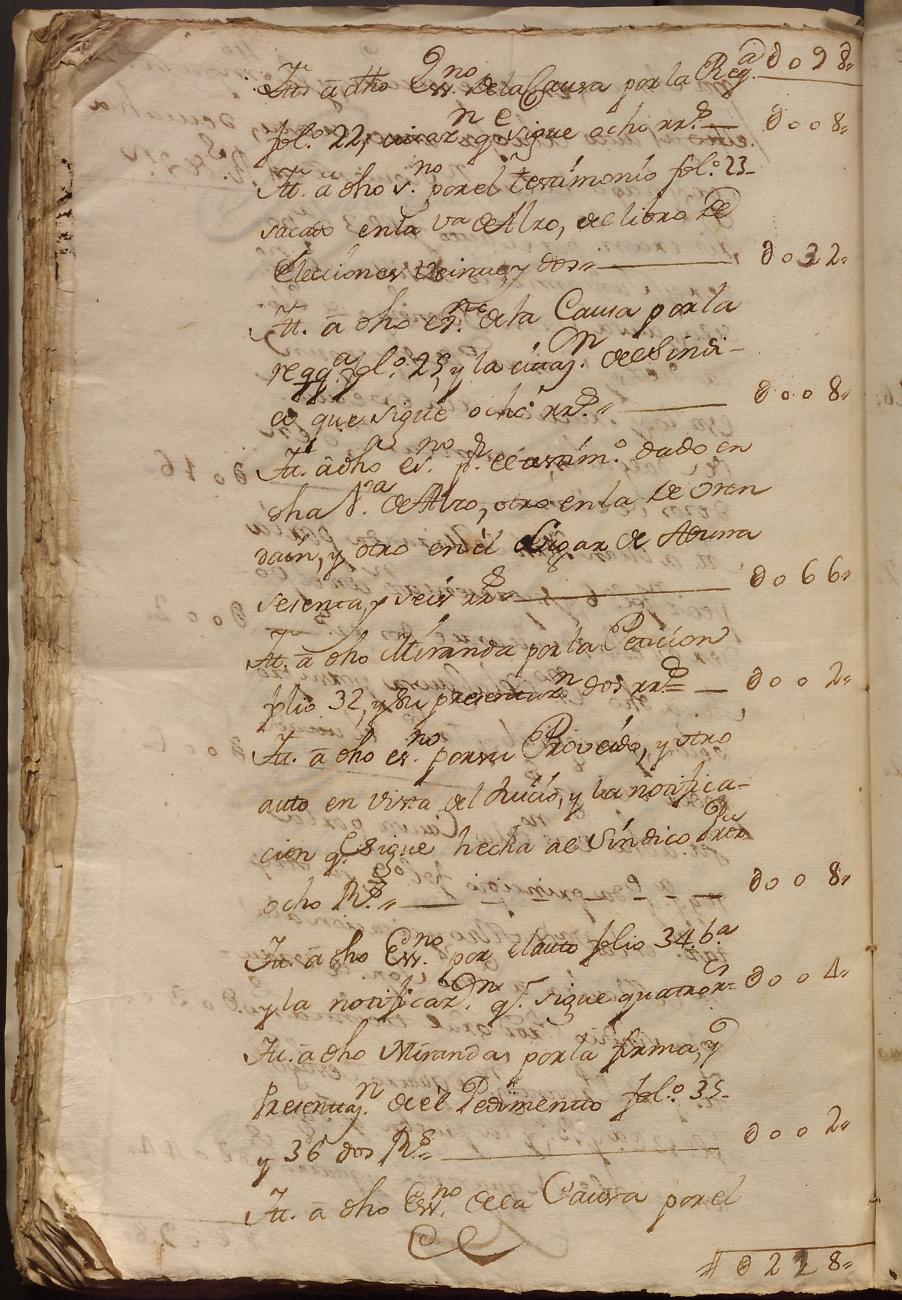 Ittt. a dho Essno de la Causa por la Reqa ∂ o 9 8"
folo. 22, citaz.n q.e sigue ocho rrs. — ∂ o o 8"
Itt. a dho s.no por el testimonio folo. 23-
sacado en la Va de Alzo, de libro de
Elecciones treinta, y dos" — ∂ o 3 2"
Itt. a dho es.no de la Causa por la
reqqa folo. 25, y la citaz.n de el Sindi-
co que sigue ocho rrs." — ∂ o o 8"
Itt. a dho es.no p.r testim.o dado en
dha V.a de Alzo, otro en la de Oren
dain, y otro en el Lugar de Aduna
sesenta y seis rrs — ∂ o 6 6"
Itt. a dho Miranda por la Peticion
folio 32, y su presentaz.n dos rrs — ∂ o o 2"
Itt. a dho es.no por su Proveido, y otro
auto en vista del Juicio, y la notifica-
cion q.e sigue hecha al Sindico
ocho Rs." — ∂ o o 8"
It. a dho Ess.no por el auto folio 34 b.a
y la notificaz.on q.e sigue quatro rs ∂ o o 4"
It. a dho Miranda por la firma, y
Presentaz.n de el Pedimento fol.o 35-
y 36 dos Rs. — ∂ o o 2"
It. a dho Ess.no de la Causa por el
∂ 2 2 8"